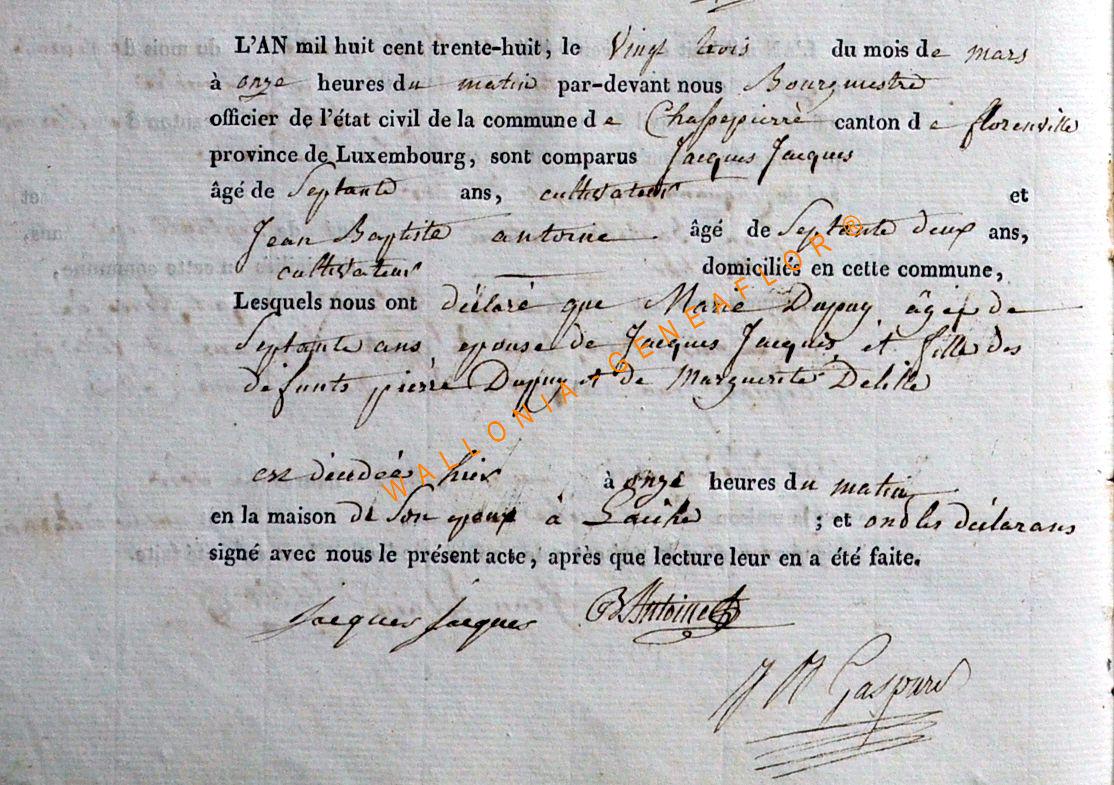 L'AN mil huit cent trente-huit, le Vingt trois du mois de mars
à onze heures du matin par-devant nous Bourguestre
officier de l'état civil de la commune de Chassepierre canton de florenville
province de Luxembourg, sont comparus Jacques Jacques
âgé de Septante ans, cultivateur et
Jean Baptiste antoine âgé de Septante deux ans,
cultivateur domiciliés en cette commune,
Lesquels nous ont déclaré que Marie Dupuy âgée de
Septante ans, epouse de Jacques Jacques, et fille des
défunts pierre Dupuy et de Marguerite Delille
est décédée hier à onze heures du matin
en la maison de Son epoux à Laiche ; et ond les déclarans
signé avec nous le présent acte, après que lecture leur en a été faite.
Jacques Jacques BAntoine
J N Gaspard
WALLONIA - GENEAFLOR ®